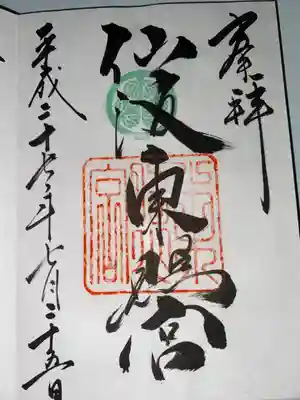 奉拝
仙波東照宮
平成二十六年七月二十五日